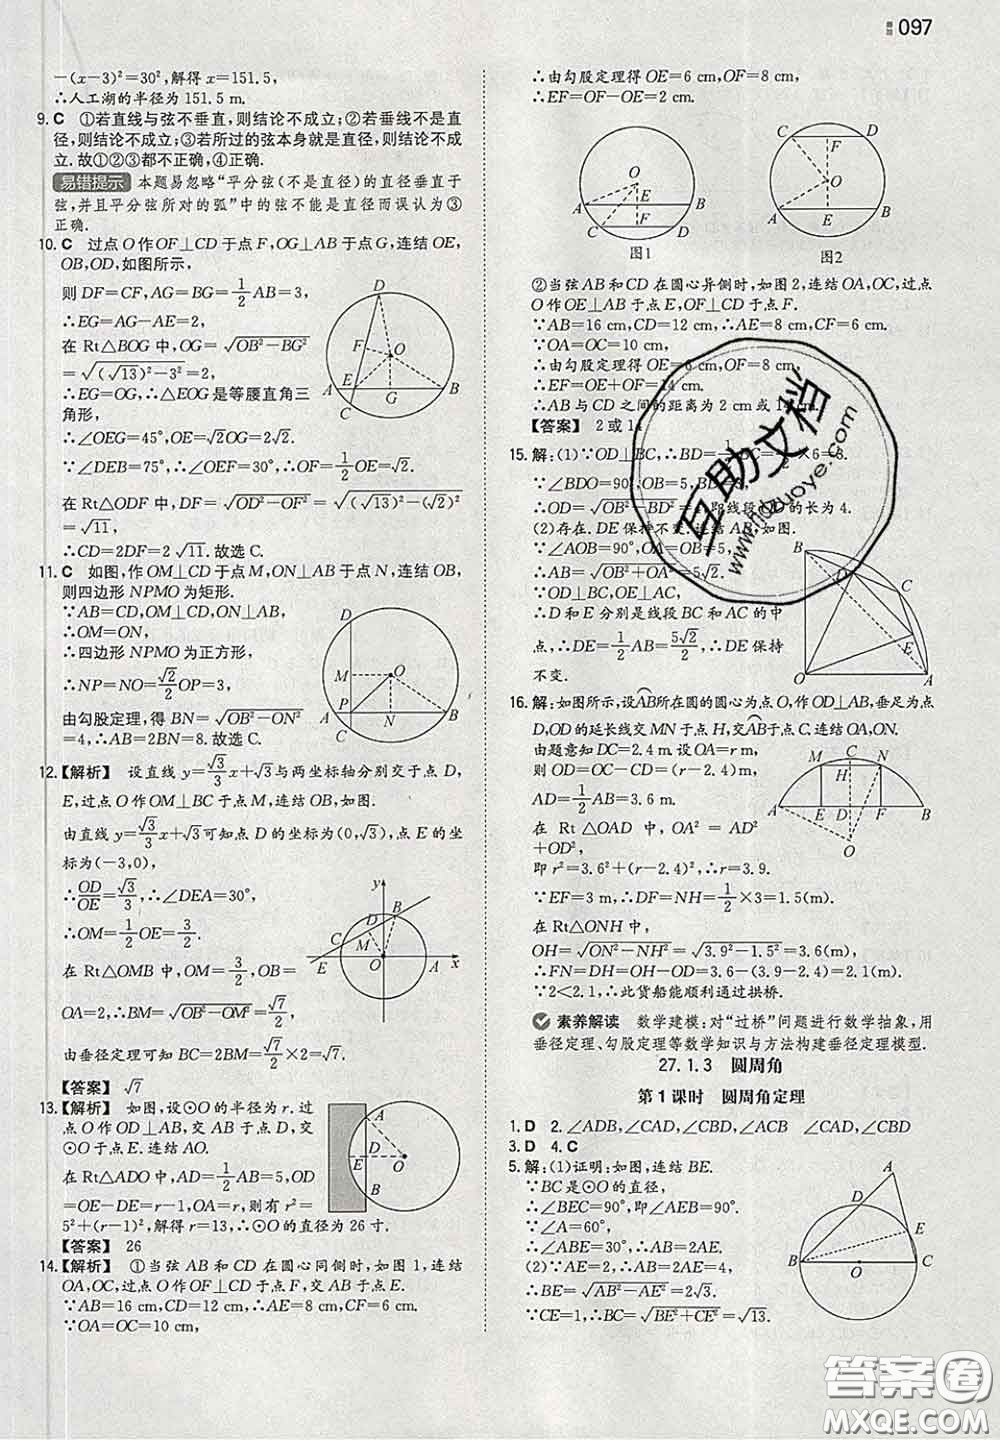 097
-(x-3)²=30²,解得x=151.5,
∴人工湖的半径为151.5 m.
9. C ①若直线与弦不垂直,则结论不成立;②若垂线不是直
径,则结论不成立;③若所过的弦本身就是直径,则结论不成
立.故①②③都不正确,④正确.
易错提示 本题易忽略“平分弦(不是直径)的直径垂直于
弦,并且平分弦所对的弧”中的弦不能是直径而误认为③
正确.
10. C 过点O作OF⊥CD于点F,OG⊥AB于点G,连结OE,
OB,OD,如图所示,
则DF=CF,AG=BG=1/2AB=3,
∴EG=AG-AE=2,
在Rt△BOG中,OG=√(OB²-BG²)
=√((√13)²-3²)=2,
∴EG=OG,∴△EOG是等腰直角三
角形,
∴∠OEG=45°,OE=√2OG=2√2.
∵∠DEB=75°,∴∠OEF=30°,∴OF=1/2OE=√2.
在Rt△ODF中,DF=√(OD²-OF²)=√((√13)²-(√2)²)
=√11,
∴CD=2DF=2√11.故选C.
11. C 如图,作OM⊥CD于点M,ON⊥AB于点N,连结OB,
则四边形NPMO为矩形.
∵AB=CD,OM⊥CD,ON⊥AB,
∴OM=ON,
∴四边形NPMO为正方形,
∴NP=NO=√2/2OP=3,
由勾股定理,得BN=√(OB²-ON²)
=4,∴AB=2BN=8.故选C.
12.【解析】 设直线y=√3/3x+√3与两坐标轴分别交于点D,
E,过点O作OM⊥BC于点M,连结OB,如图.
由直线y=√3/3x+√3可知点D的坐标为(0,√3),点E的坐
标为(-3,0),
∴OD/OE=√3/3,∴∠DEA=30°,
∴OM=1/2OE=3/2.
在Rt△OMB中,OM=3/2,OB=
OA=2,∴BM=√(OB²-OM²)=√7/2,
由垂径定理可知BC=2BM=√7/2×2=√7.
【答案】 √7
13.【解析】 如图,设⊙O的半径为r.过
点O作OD⊥AB,交AB于点D,交⊙O
于点E.连结AO.
在Rt△ADO中,AD=1/2AB=5,OD
=OE-DE=r-1,OA=r,则有r²=
5²+(r-1)²,解得r=13,∴⊙O的直径为26寸.
【答案】 26
14.【解析】 ①当弦AB和CD在圆心同侧时,如图1,连结
OA,OC,过点O作OF⊥CD于点F,交AB于点E.
∵AB=16 cm,CD=12 cm,∴AE=8 cm,CF=6 cm.
∵OA=OC=10 cm,
∴由勾股定理得OE=6 cm,OF=8 cm,
∴EF=OF-OE=2 cm.
图1
图2
②当弦AB和CD在圆心异侧时,如图2,连结OA,OC,过点
O作OE⊥AB于点E,OF⊥CD于点F.
∵AB=16 cm,CD=12 cm,∴AE=8 cm,CF=6 cm.
∵OA=OC=10 cm,
∴由勾股定理得OE=6 cm,OF=8 cm.
∴EF=OF+OE=14 cm.
∴AB与CD之间的距离为2 cm或14 cm.
【答案】 2或14
15. 解:(1)∵OD⊥BC,∴BD=1/2BC=1/2×6=3.
∵∠BDO=90°,OB=5,BD=3,
∴OD=√(OB²-BD²)=4,即线段OD的长为4.
(2)存在.DE保持不变.连结AB,如图.
∵∠AOB=90°,OA=OB=5,
∴AB=√(OB²+OA²)=5√2.
∵OD⊥BC,OE⊥AC,
∴D和E分别是线段BC和AC的中
点,∴DE=1/2AB=5√2/2,∴DE保持
不变.
16. 解:如图所示,设AB所在圆的圆心为点O,作OD⊥AB,垂足为点
D,OD的延长线交MN于点H,交AB于点C,连结OA,ON.
由题意知DC=2.4 m.设OA=r m,
则OD=OC-CD=(r-2.4)m,
AD=1/2AB=3.6 m.
在Rt△OAD中,OA²=AD²
+OD²,
即r²=3.6²+(r-2.4)²,∴r=3.9.
∵EF=3 m,∴DF=NH=1/2×3=1.5(m).
在Rt△ONH中,
OH=√(ON²-NH²)=√(3.9²-1.5²)=3.6(m).
∴FN=DH=OH-OD=3.6-1.5=2.1(m).
∵2<2.1,∴此货船能顺利通过拱桥.
素养解读 数学建模:对“过桥”问题进行数学抽象,用
垂径定理、勾股定理等数学知识与方法构建垂径定理模型.
27.1.3 圆周角
第1课时 圆周角定理
1. D 2. ∠ADB,∠CAD,∠CBD,∠ACB ∠CAD,∠CBD
3. D 4. C
5. 解:(1)证明:如图,连结BE.
∵BC是⊙O的直径,
∴∠BEC=90°,即∠AEB=90°.
∵∠A=60°,
∴∠ABE=30°,∴AB=2AE.
(2)∵AE=2,∴AB=2AE=4,
∴BE=√(AB²-AE²)=2√3.
∵CE=1,∴BC=√(BE²+CE²)=√13.
互助文档
www.jdzuoye.com
答案圈
MXQE.COM